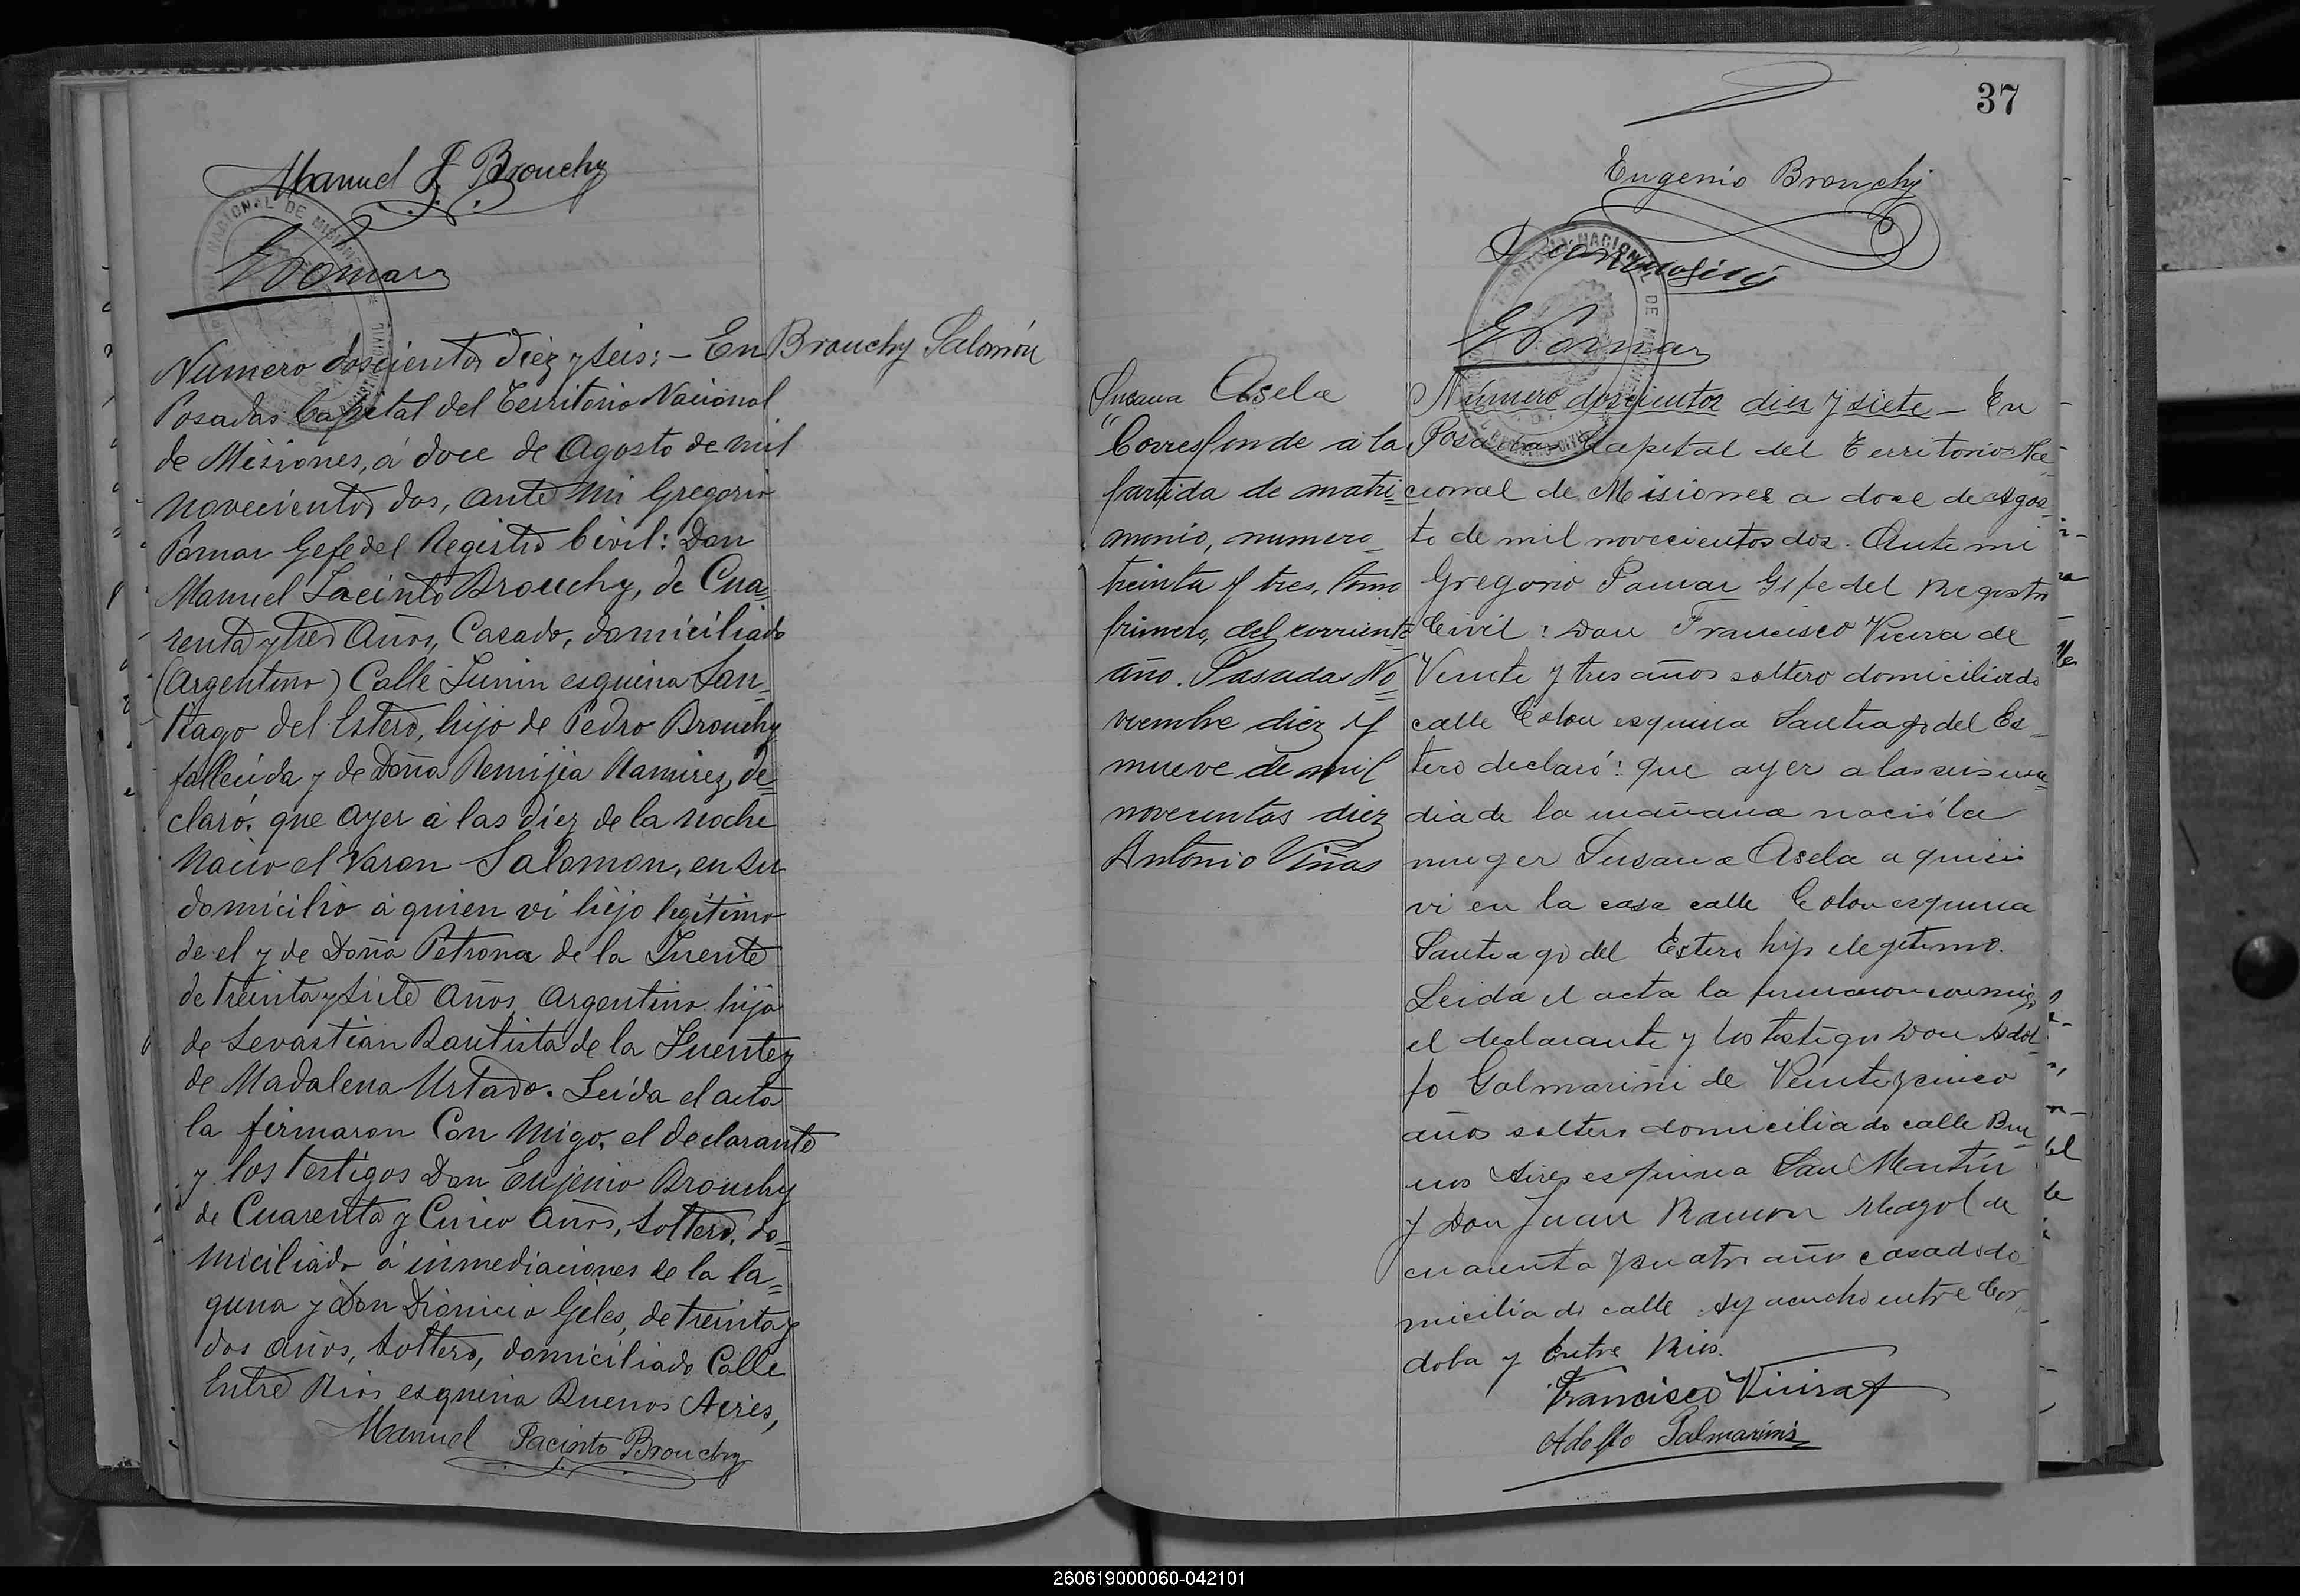 Manuel J. Brouchy
GPomar
Numero doscientos diez y seis: – En
Brouchy Salomón
Posadas Capital del Territorio Nacional
de Misiones, á doce de Agosto de mil
novecientos dos, ante mi Gregorio
Pomar Gefe del Registro Civil: Don
Manuel Jacinto Brouchy, de Cua=
renta y tres Años, Casado, domiciliado
(Argentino) Calle Junin esquina San=
tiago del Estero, hijo de Pedro Brouchy
fallecido y de Doña Remijia Ramires, de=
claró: que ayer á las diez de la noche
nacio el Varon Salomon, en su
domicilio á quien vi hijo legitimo
de el y de Doña Petrona de la Fuente
de treinta y siete Años, Argentina hija
de Sevastian Bautista de la Fuente y
de Madalena Urtado. Leida el acta
la firmaron Con migo, el declarante
y los testigos Don Eujenio Brouchy
de Cuarenta y Cinco Años, Soltero, do=
miciliado á inmediaciones de la la=
guna y Don Dionicio Geles, de treinta y
dos años, Soltero, domiciliado Calle
Entre Rios esquina Buenos Aires,
Manuel Jacinto Brouchy
37
Eugenio Brouchy
GPomar
Susana Asela
"Corresponde a la
partida de matri=
monio, numero
treinta y tres, tomo
primero, del corriente
año. Posadas No=
viembre diez y
nueve de mil
novecientos diez
Antonio Viñas
Número doscientos diez y siete – En
Posadas Capital del Territorio Na
cional de Misiones a doce de Agos
to de mil novecientos dos. Ante mi
Gregorio Pomar Gefe del Registro
Civil: Don Francisco Vieira de
Veinte y tres años soltero domiciliado
calle Colon esquina Santiago del Es
tero declaró: que ayer a las seis y me=
dia de la mañana nació la
muger Susana Asela a quien
vi en la casa calle Colon esquina
Santiago del Estero hija ilegitima.
Leida el acta la firmaron conmigo
el declarante y los testigos Don Adol
fo Galmarini de Veinte y cinco
años soltero domiciliado calle Bue
nos Aires esquina San Martin
y Don Juan Ramon Magol de
cuarenta y cuatro años casado do
miciliado calle Ayacucho entre Cor
doba y Entre Rios.
Francisco Vieira
Adolfo Galmarini
260619000060-042101